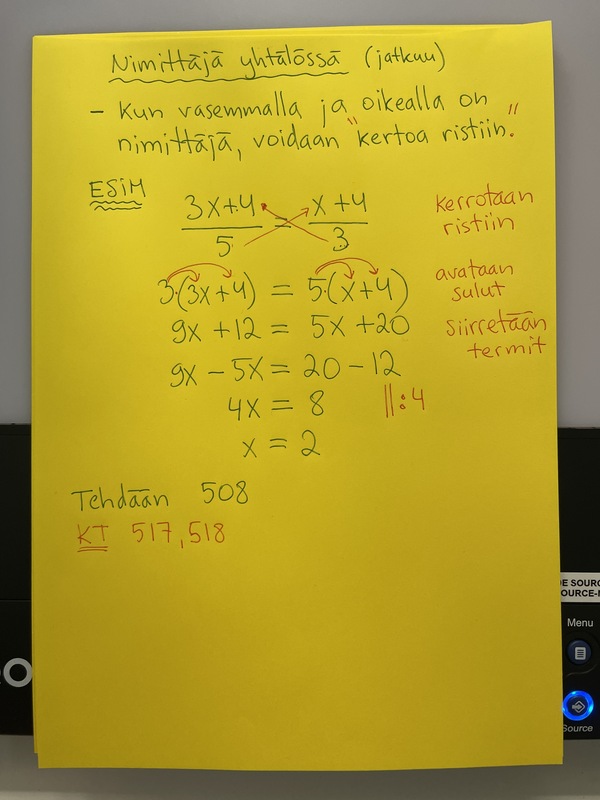 Nimittäjä yhtälössä (jatkuu)
- Kun vasemmalla ja oikealla on
nimittäjä, voidaan "kertoa ristiin."
ESIM
3x+4 / 5 = x+4 / 3
kerrotaan
ristiin
3·(3x+4) = 5·(x+4)
avataan
sulut
9x +12 = 5x +20
siirretään
termit
9x - 5x = 20 - 12
4x = 8 ||:4
x = 2
Tehdään 508
KT 517, 518
Menu
Source